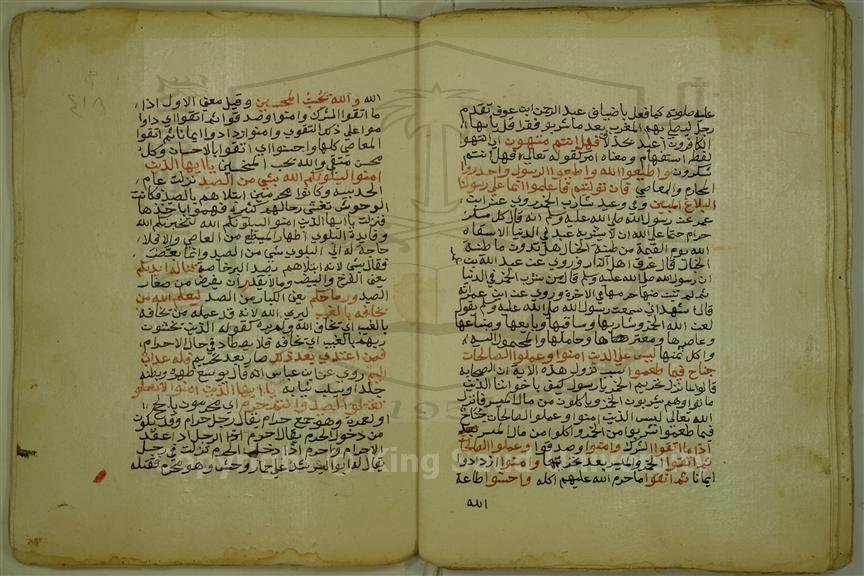 عليه صلوته كما فعل باضياف عبد الرحمن ابن عوف تقدم
رجل ليصلي بهم المغرب بعد ما شربوا فقرا قل يا ايها
الكافرون اعبد بحذف لا فهل انتم منتهون اي انتهوا
لفظه استفهام ومعناه امر كقوله تعالى فهل انتم
شكرون واطيعوا الله واطيعوا الرسول واحذروا
المحارم والمعاصي فان توليتم فاعلموا انما على رسولنا
البلاغ المبين وفي وعيد شارب الخمر روي عن ابن
عمر عن رسول الله صلى الله عليه وسلم انه قال كل مسكر
حرام حتما على الله ان لا يشربه عبد في الدنيا الا سقاه
الله يوم القيمة من طينة الخبال هل تدرون ما طينة
الخبال قال عرق اهل النار وروي عن عبد الله بن
ان رسول الله صلى الله عليه وسلم قال من شرب الخمر في الدنيا
ثم لم تب منها حرمها في الاخرة وروي عن ابن عمر انه
قال اشهد اني سمعت رسول الله صلى الله عليه وسلم يقول
لعن الله الخمر وشاربها وساقيها وبايعها ومبتاعها
وعاصرها ومعتصرها وحاملها والمحمولة اليه
واكل ثمنها ليس على الذين امنوا وعملوا الصالحات
جناح فيما طعموا سبب نزول هذه الاية ان الصحابة
قالوا لما نزل تحريم الخمر يا رسول كيف باخواننا الذين
ماتوا وهم يشربون الخمر وياكلون من مال الميسر فانزل
الله تعالى ليس على الذين امنوا وعملوا الصالحات جناح
فيما طعموا شربوا من الخمر واكلوا من مال الميسر
اذا ما اتقوا الشرك وامنوا وصدقوا وعملوا الصالحات
ثم اتقوا الخمر والميسر بعد تحريمها وامنوا ازدادوا
ايمانا ثم اتقوا ما حرم الله عليهم اكله واحسنوا طاعة
الله
الله والله يحب المحسنين وقيل معنى الاول اذا
ما اتقوا الشرك وامنوا وصدقوا ثم اتقوا اي داوموا
على ذلك التقوى وامنوا وازدادوا ايمانا ثم اتقوا
المعاصي كلها واحسنوا اي اتقوا بالاحسان وكل
محسن متقي والله يحب المحسنين يا ايها الذين
امنوا ليبلونكم الله بشي من الصيد نزلت عام
الحديبية وكانوا محرمين ابتلاهم بالصيد فكانت
الوحوش تغشى رحالهم كثيرة فهموا باخذها
فنزلت يا ايها الذين امنوا ليبلونكم الله ليختبرنكم الله
وفايدة البلوى اظهار المطيع من العاصي والا فلا
حاجة له الى البلوى بشي من الصيد وانما بعض
فقال بشي لانه ابتلاهم بصيد البر خاصة تناله ايديكم
يعني الفرخ والبيض وما لا يقدر ان يفر من صغار
الصيد ورماحكم يعني الكبار من الصيد ليعلم الله من
يخافه بالغيب ليرى الله لانه قد علمه من يخافه
بالغيب اي يخاف الله ولم يره كقوله الذين يخشون
ربهم بالغيب اي يخافه فلا يصطاد في حال الاحرام
فمن اعتدى بعد ذلك صار بعد تحريمه فله عذاب
اليم روي عن ابن عباس انه قال يوسع ظهره وبطنه
جلدا ويسلب ثيابه يا ايها الذين امنوا لا تقتلوا
تقتلوا الصيد وانتم حرم اي محرمون بالحج
او العمرة وهو جمع حرام يقال رجل حرام وقد يكون
من دخول الحرم يقال احرم اذا الرجل اذا عقد
الاحرام واحرم اذا دخل الحرم نزلت في رجل
يقال له ابو اليسر شد على حمار وحش وهو محرم فقتله